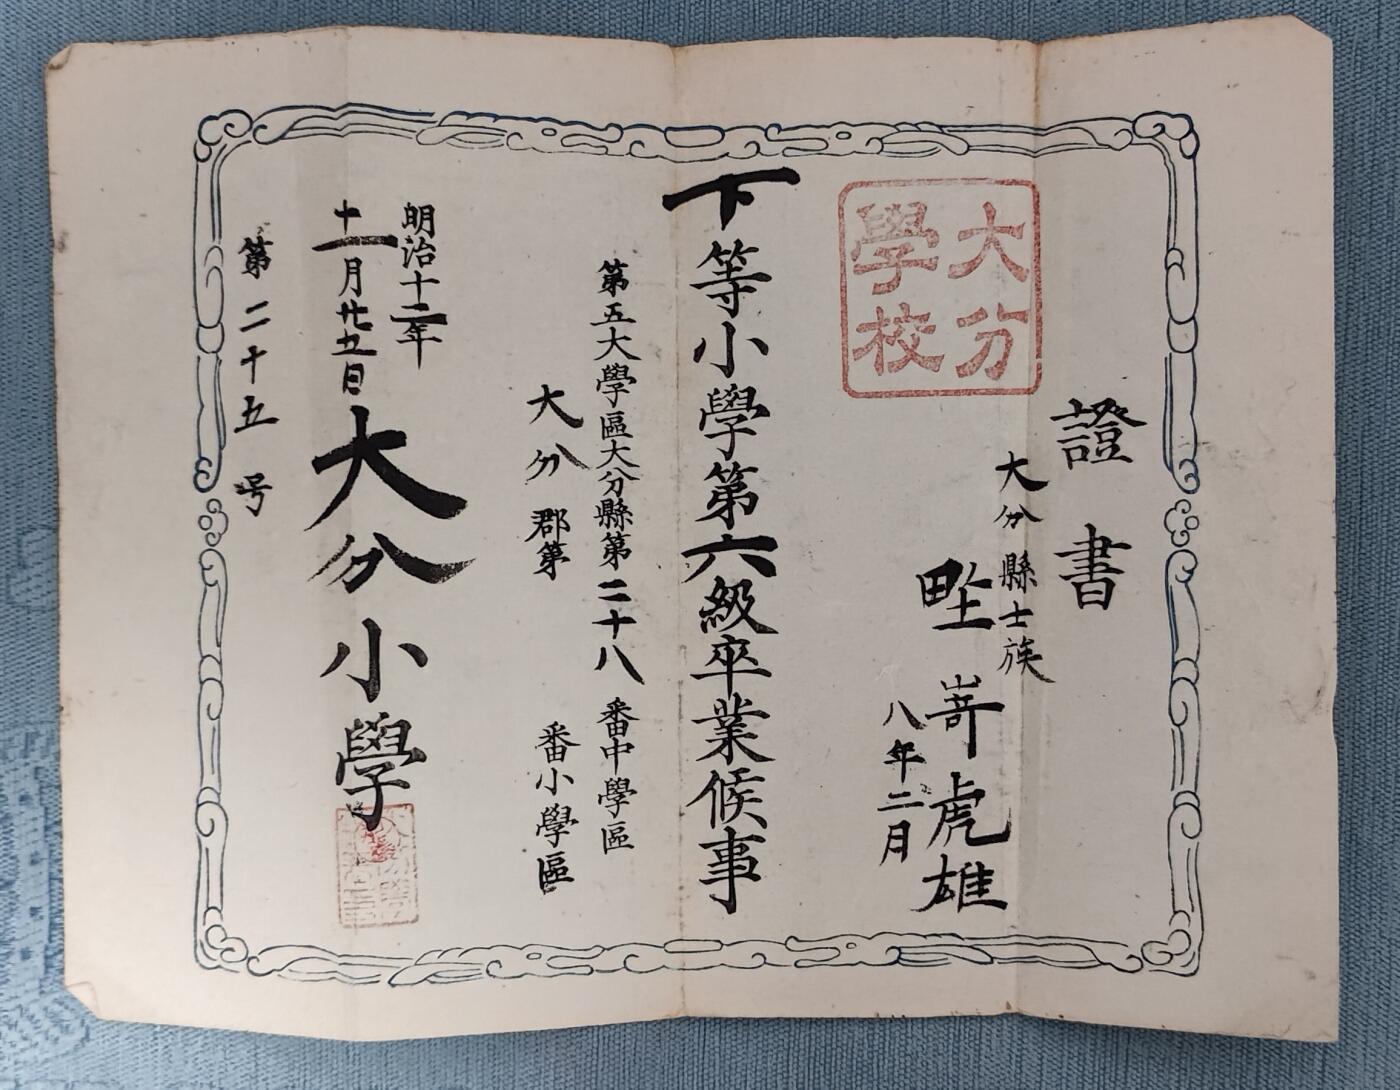 證書
大分學校
大分縣士族
㘴嵜虎雄
八年二月
下等小學第六級卒業候事
第五大學區大分縣第二十八番中學區
大分郡第番小學區
明治十二年
十一月廿五日
大分小學
第二十五号